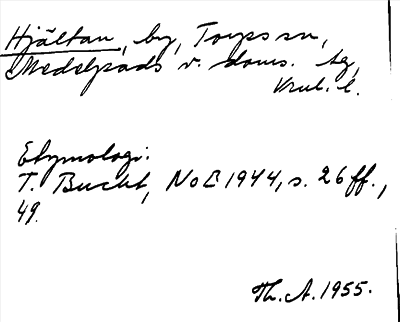 Hjältan, by, Torps sn,
Medelpads v. doms. tg,
Vnl. l.
Etymologi:
T. Bucht, NoB 1944, s. 26 ff.,
49.
Th. A. 1955.